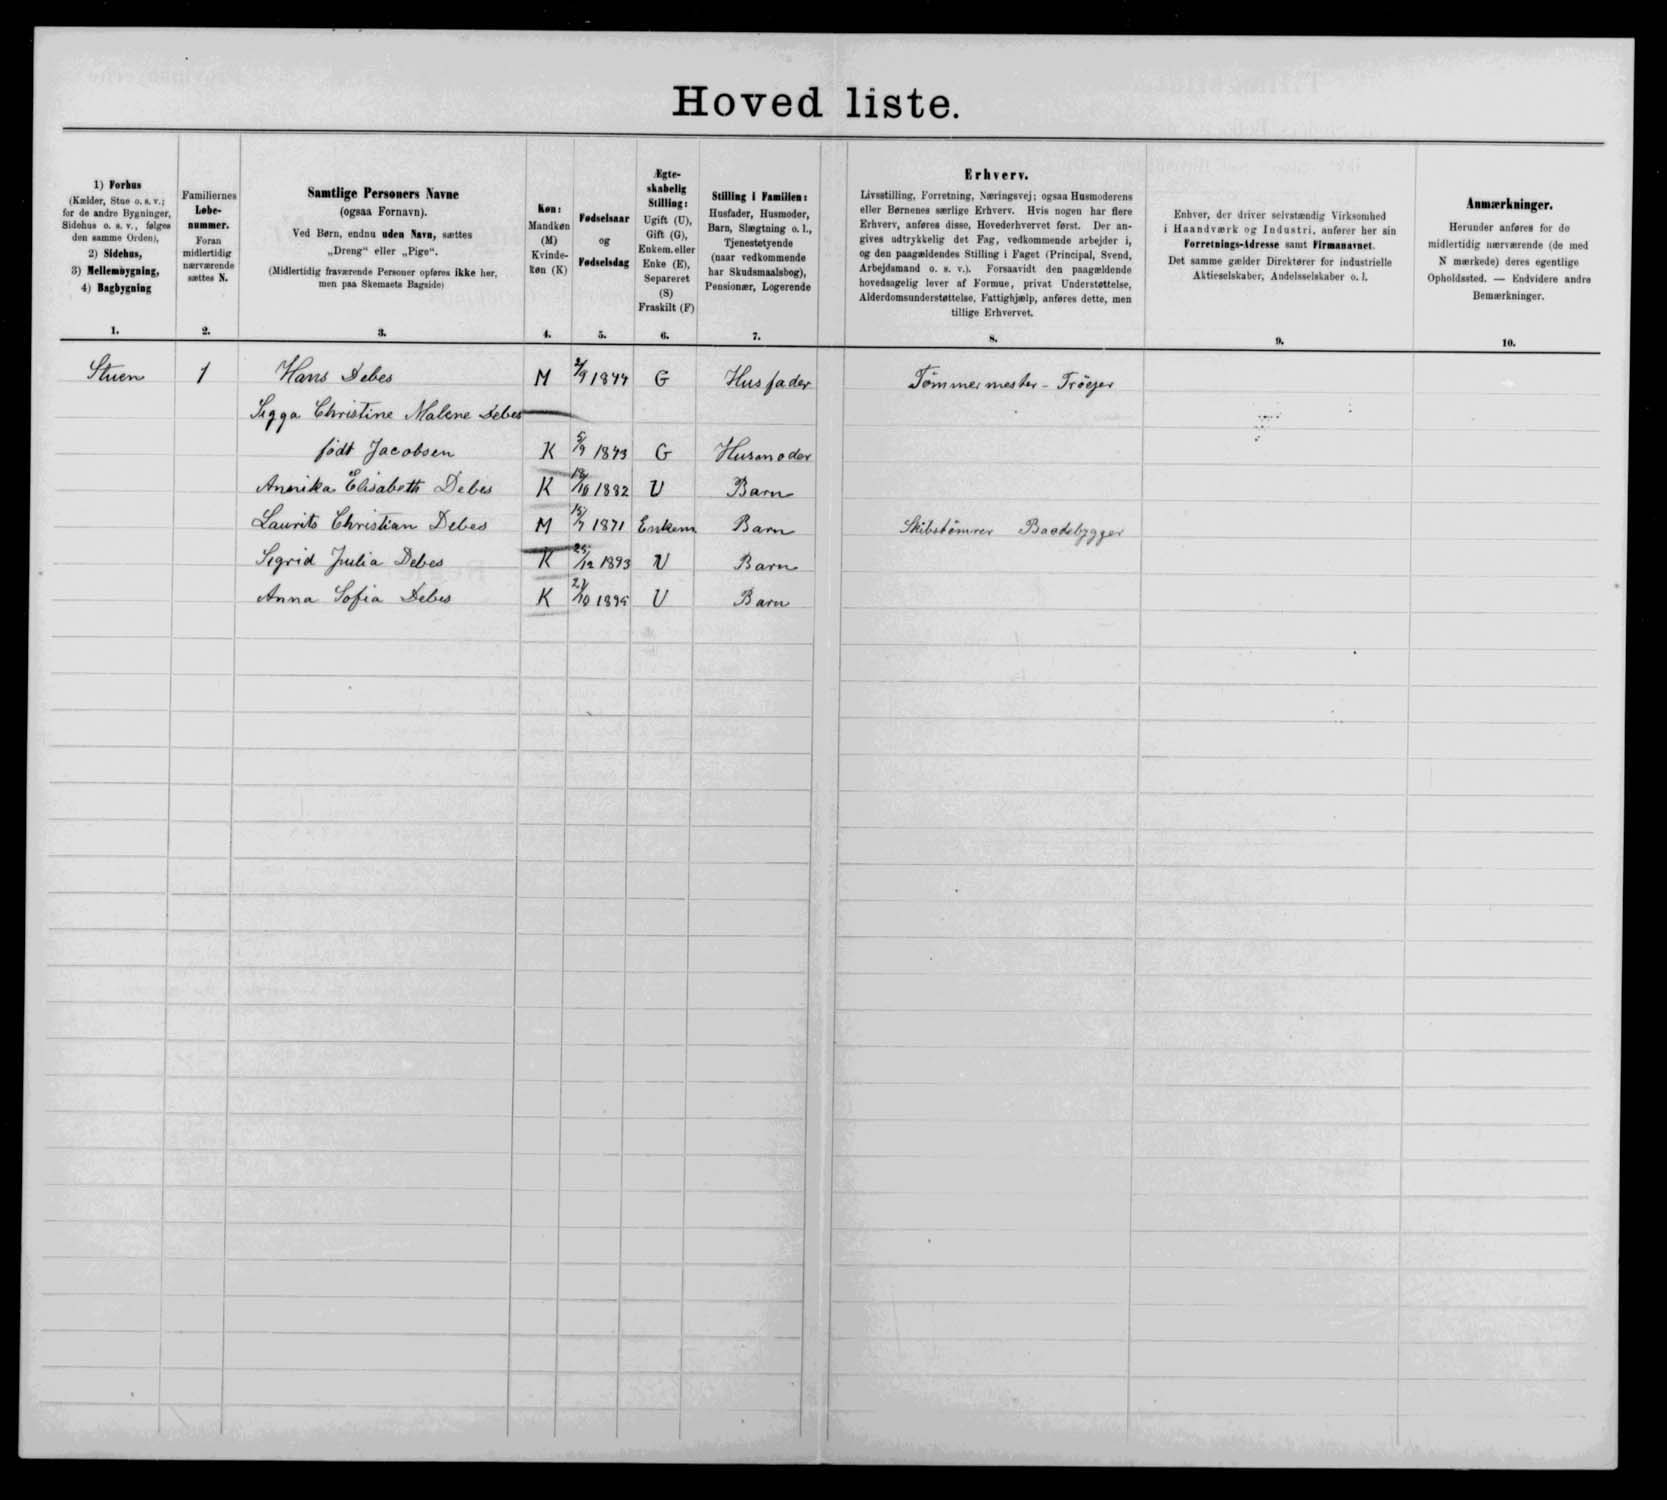 Hovedliste.
1) Forhus
(Kælder, Stue o. s. v.;
for de andre Bygninger,
Sidehus o. s. v., følges
den samme Orden),
2) Sidehus,
3) Mellembygning,
4) Bagbygning
1.
Familiernes
Løbe-
nummer.
Foran
midlertidig
nærværende
sættes N.
2.
Samtlige Personers Navne
(ogsaa Fornavn).
Ved Børn, endnu uden Navn, sættes
„Dreng“ eller „Pige“.
(Midlertidig fraværende Personer opføres ikke her,
men paa Skemaets Bagside)
3.
Køn:
Mandkøn
(M)
Kvinde-
køn (K)
4.
Fødselsaar
og
Fødselsdag
5.
Ægte-
skabelig
Stilling:
Ugift (U),
Gift (G),
Enkem. eller
Enke (E),
Separeret
(S)
Fraskilt (F)
6.
Stilling i Familien:
Husfader, Husmoder,
Barn, Slægtning o. l.,
Tjenestetyende
(naar vedkommende
har Skudsmaalsbog),
Pensionær, Logerende
7.
Erhverv.
Livsstilling, Forretning, Næringsvej; ogsaa Husmoderens
eller Børnenes særlige Erhverv. Hvis nogen har flere
Erhverv, anføres disse, Hovederhvervet først. Der an-
gives udtrykkelig det Fag, vedkommende arbejder i,
og den paagældendes Stilling i Faget (Principal, Svend,
Arbejdsmand o. s. v.). Forsaavidt den paagældende
hovedsagelig lever af Formue, privat Understøttelse,
Alderdomsunderstøttelse, Fattighjælp, anføres dette, men
tillige Erhvervet.
8.
Enhver, der driver selvstændig Virksomhed
i Haandværk og Industri, anfører her sin
Forretnings-Adresse samt Firmanavnet.
Det samme gælder Direktører for industrielle
Aktieselskaber, Andelsselskaber o. l.
9.
Anmærkninger.
Herunder anføres for de
midlertidig nærværende (de med
N mærkede) deres egentlige
Opholdssted. — Endvidere andre
Bemærkninger.
10.
Stuen 1 Hans Debes M 2/9 1844 G Husfader Tömmermester -
Sigga Christine Malene Debes
født Jacobsen K 5/9 1843 G Husmoder
Annika Elisabeth Debes K 18/10 1882 U Barn
Laurits Christian Debes M 15/7 1871 Enkem. Barn Skibstömrer Baadebygger
Sigrid Julia Debes K 25/12 1893 U Barn
Anna Sofia Debes K 1895 U Barn